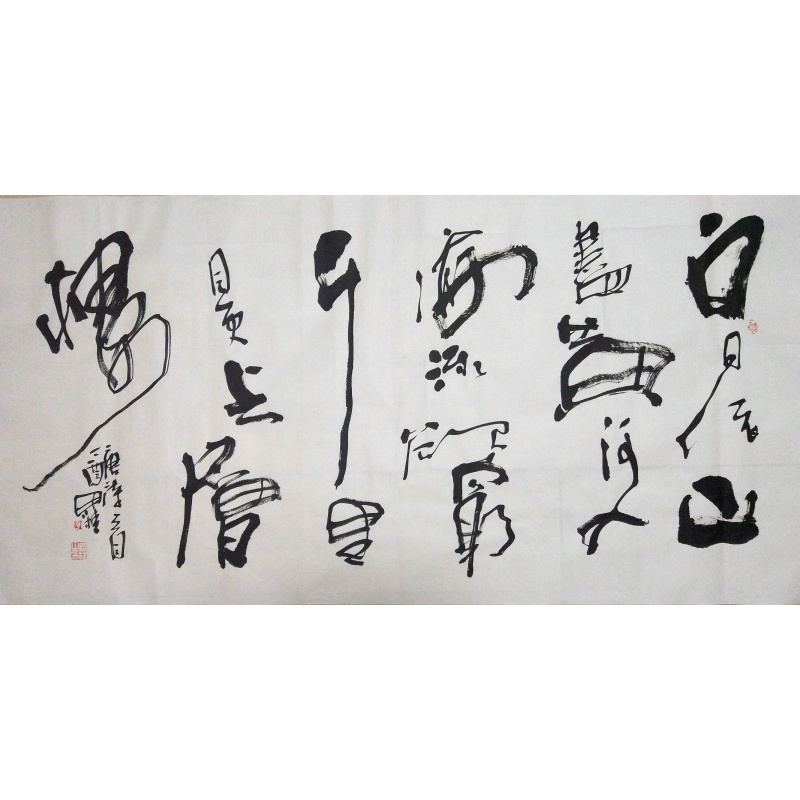 白日依山
盡黄河入
海流欲窮
千里
目更上層
樓